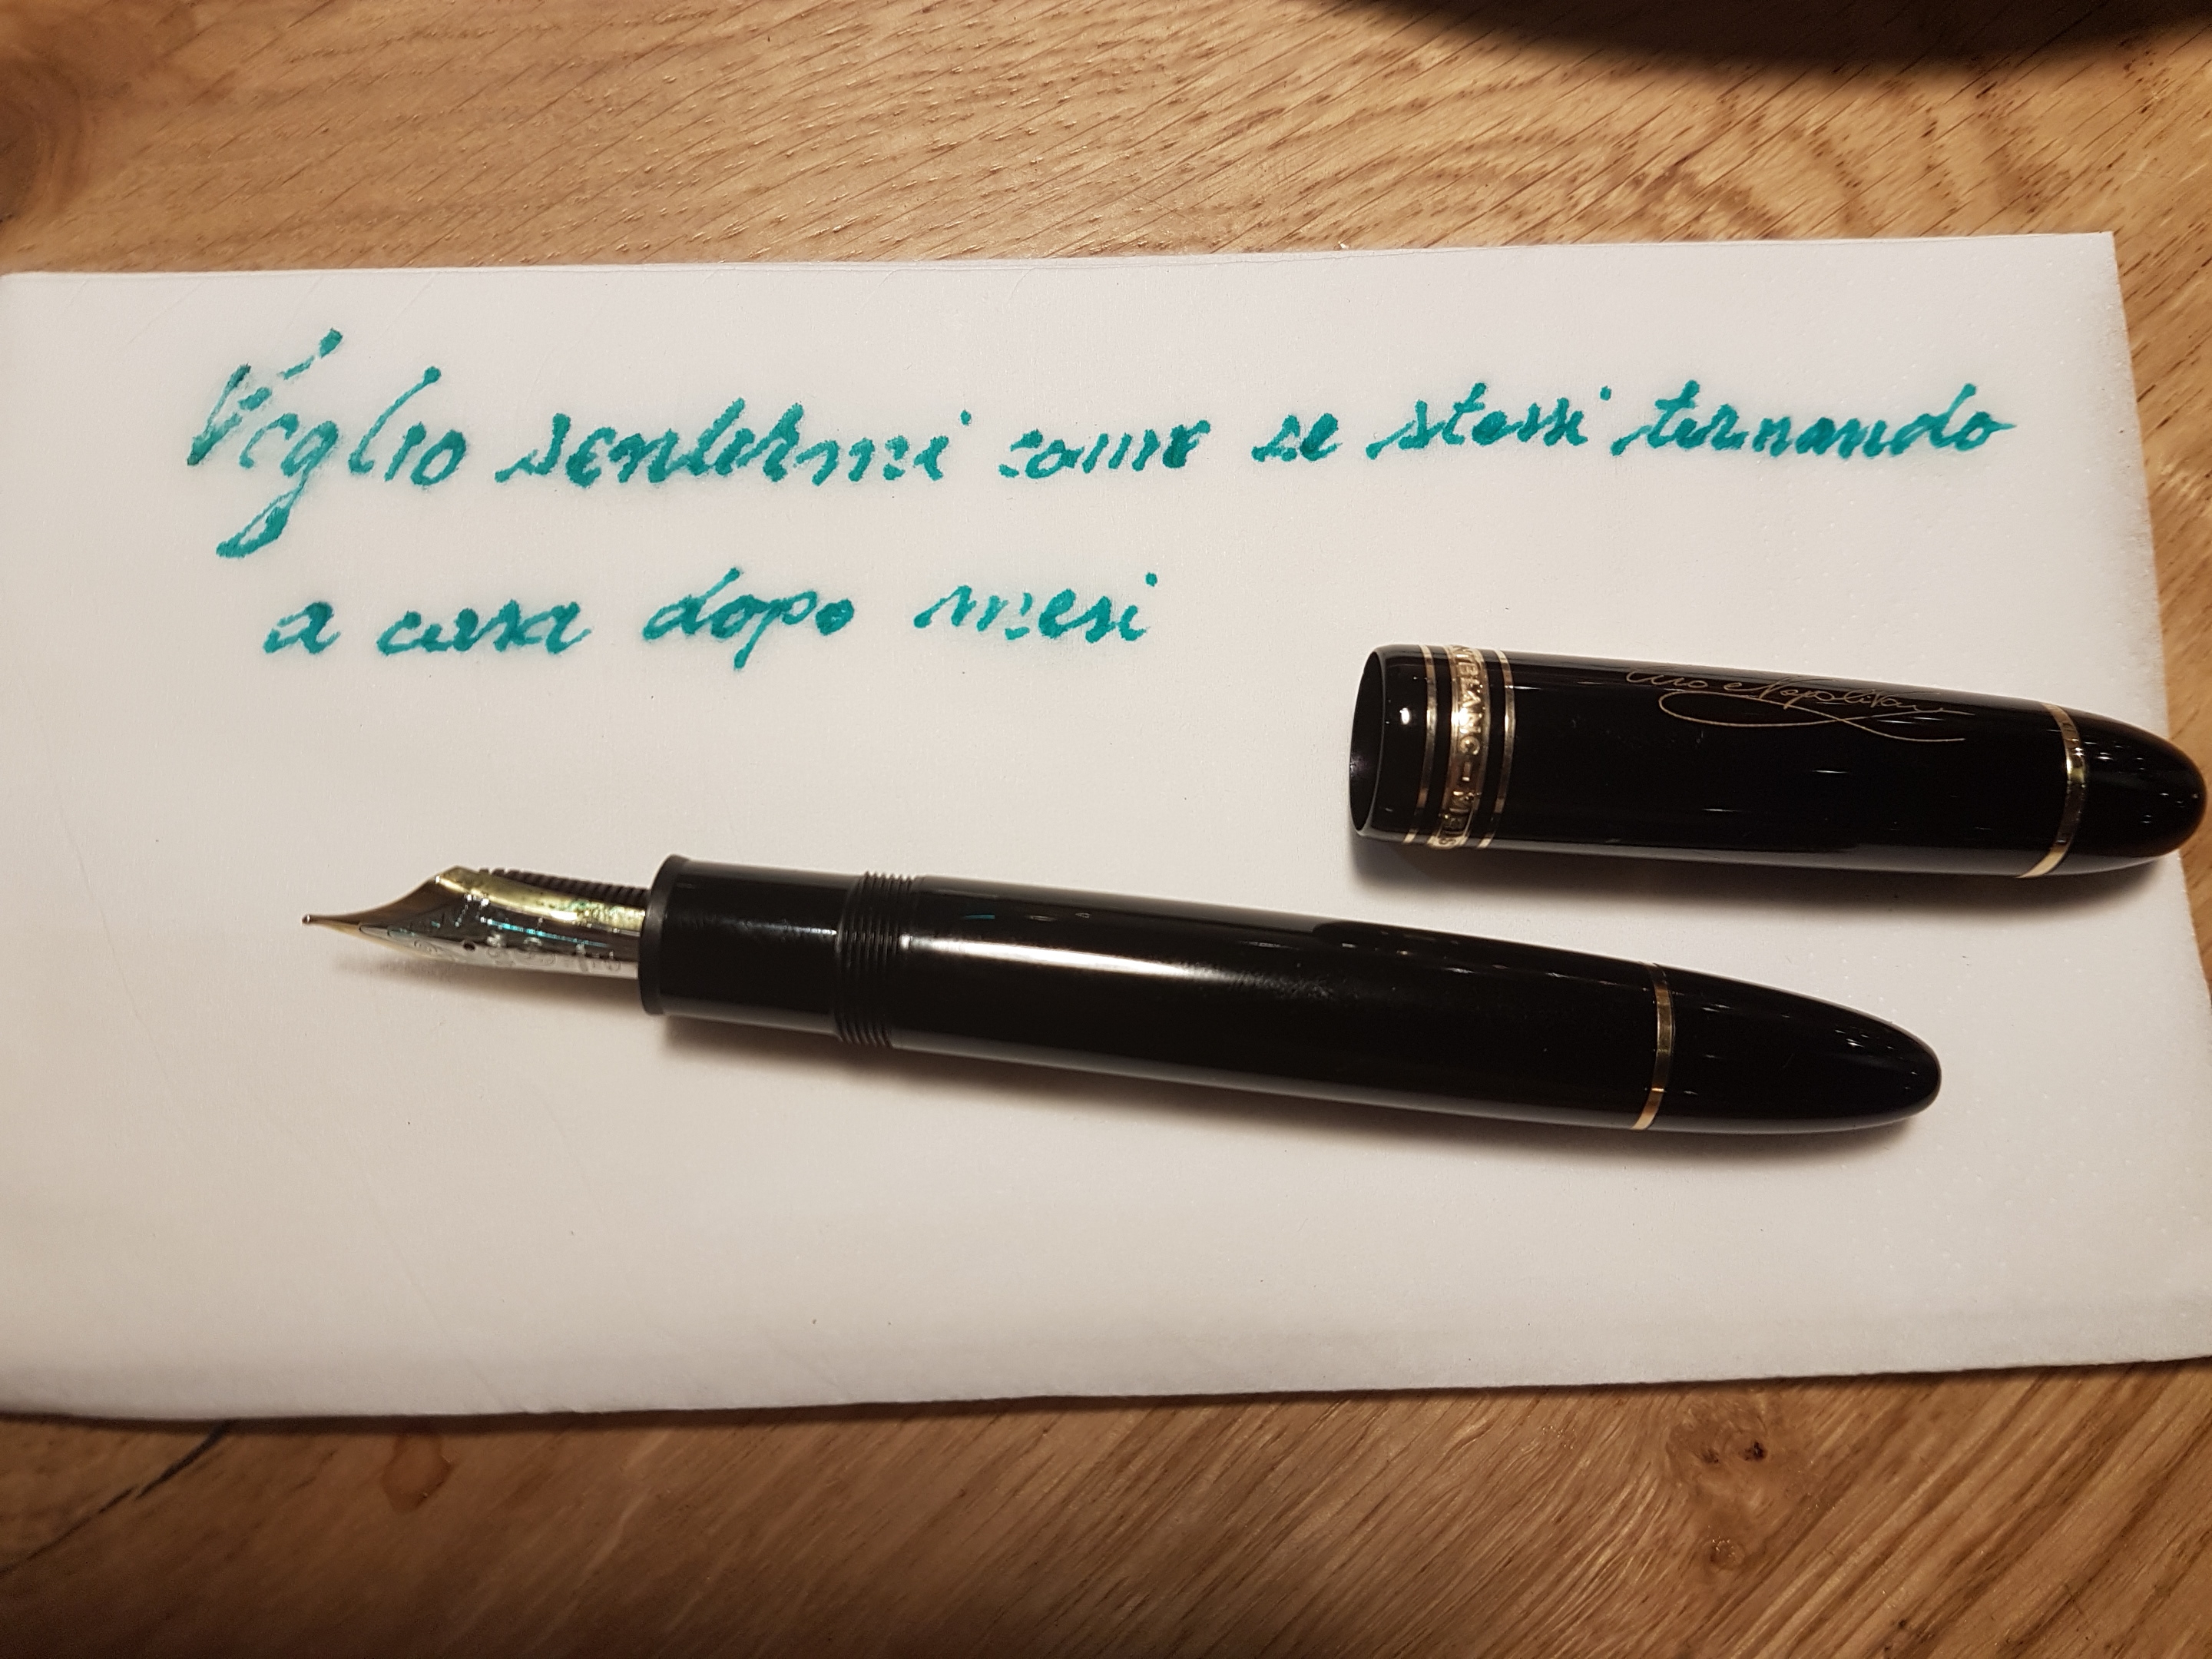 Voglio sentirmi come se stessi tornando
a casa dopo mesi
Ciro Napolitano